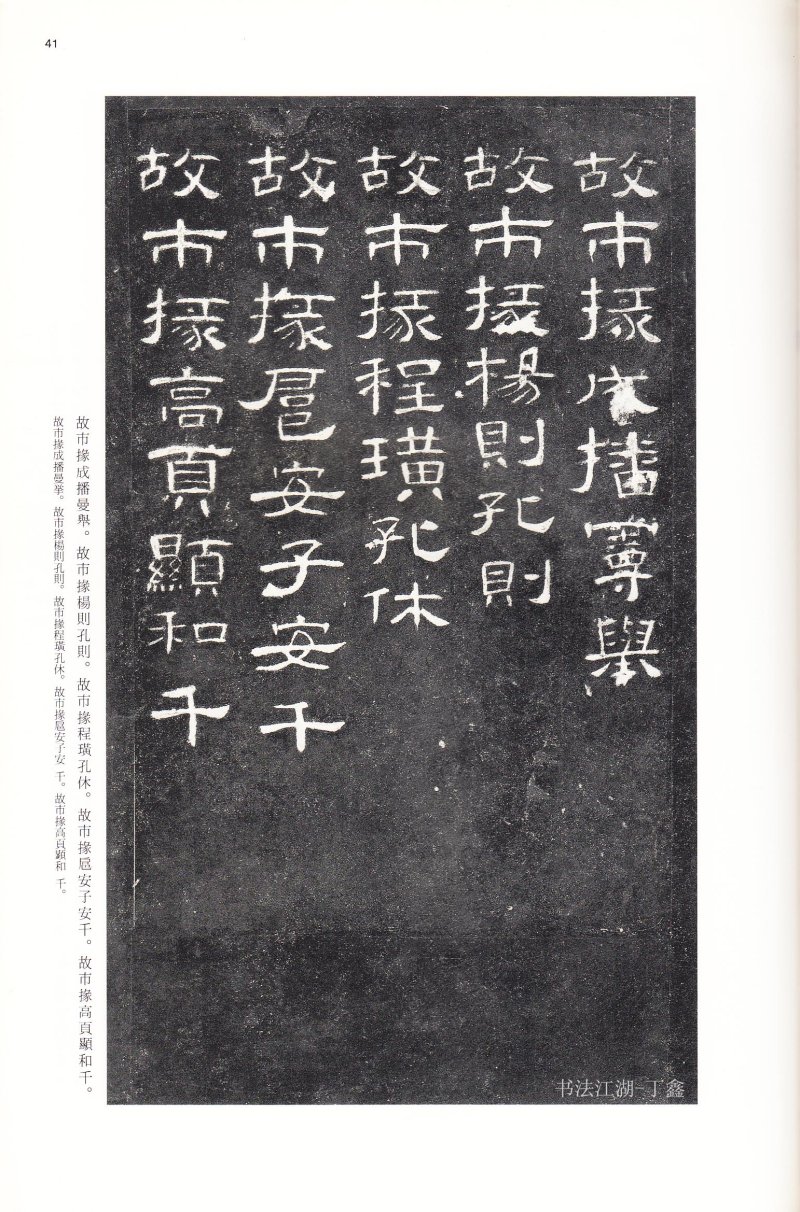 41
故市掾成播曼舉
故市掾楊則孔則
故市掾程璜孔休
故市掾扈安子安千
故市掾高頁顯和千
书法江湖-丁鑫
故市掾成播曼舉。故市掾楊則孔則。故市掾程璜孔休。故市掾扈安子安千。故市掾高頁顯和千。
故市掾成播曼举。故市掾楊則孔則。故市掾程璜孔休。故市掾扈安子安 千。故市掾高頁顕和 千。